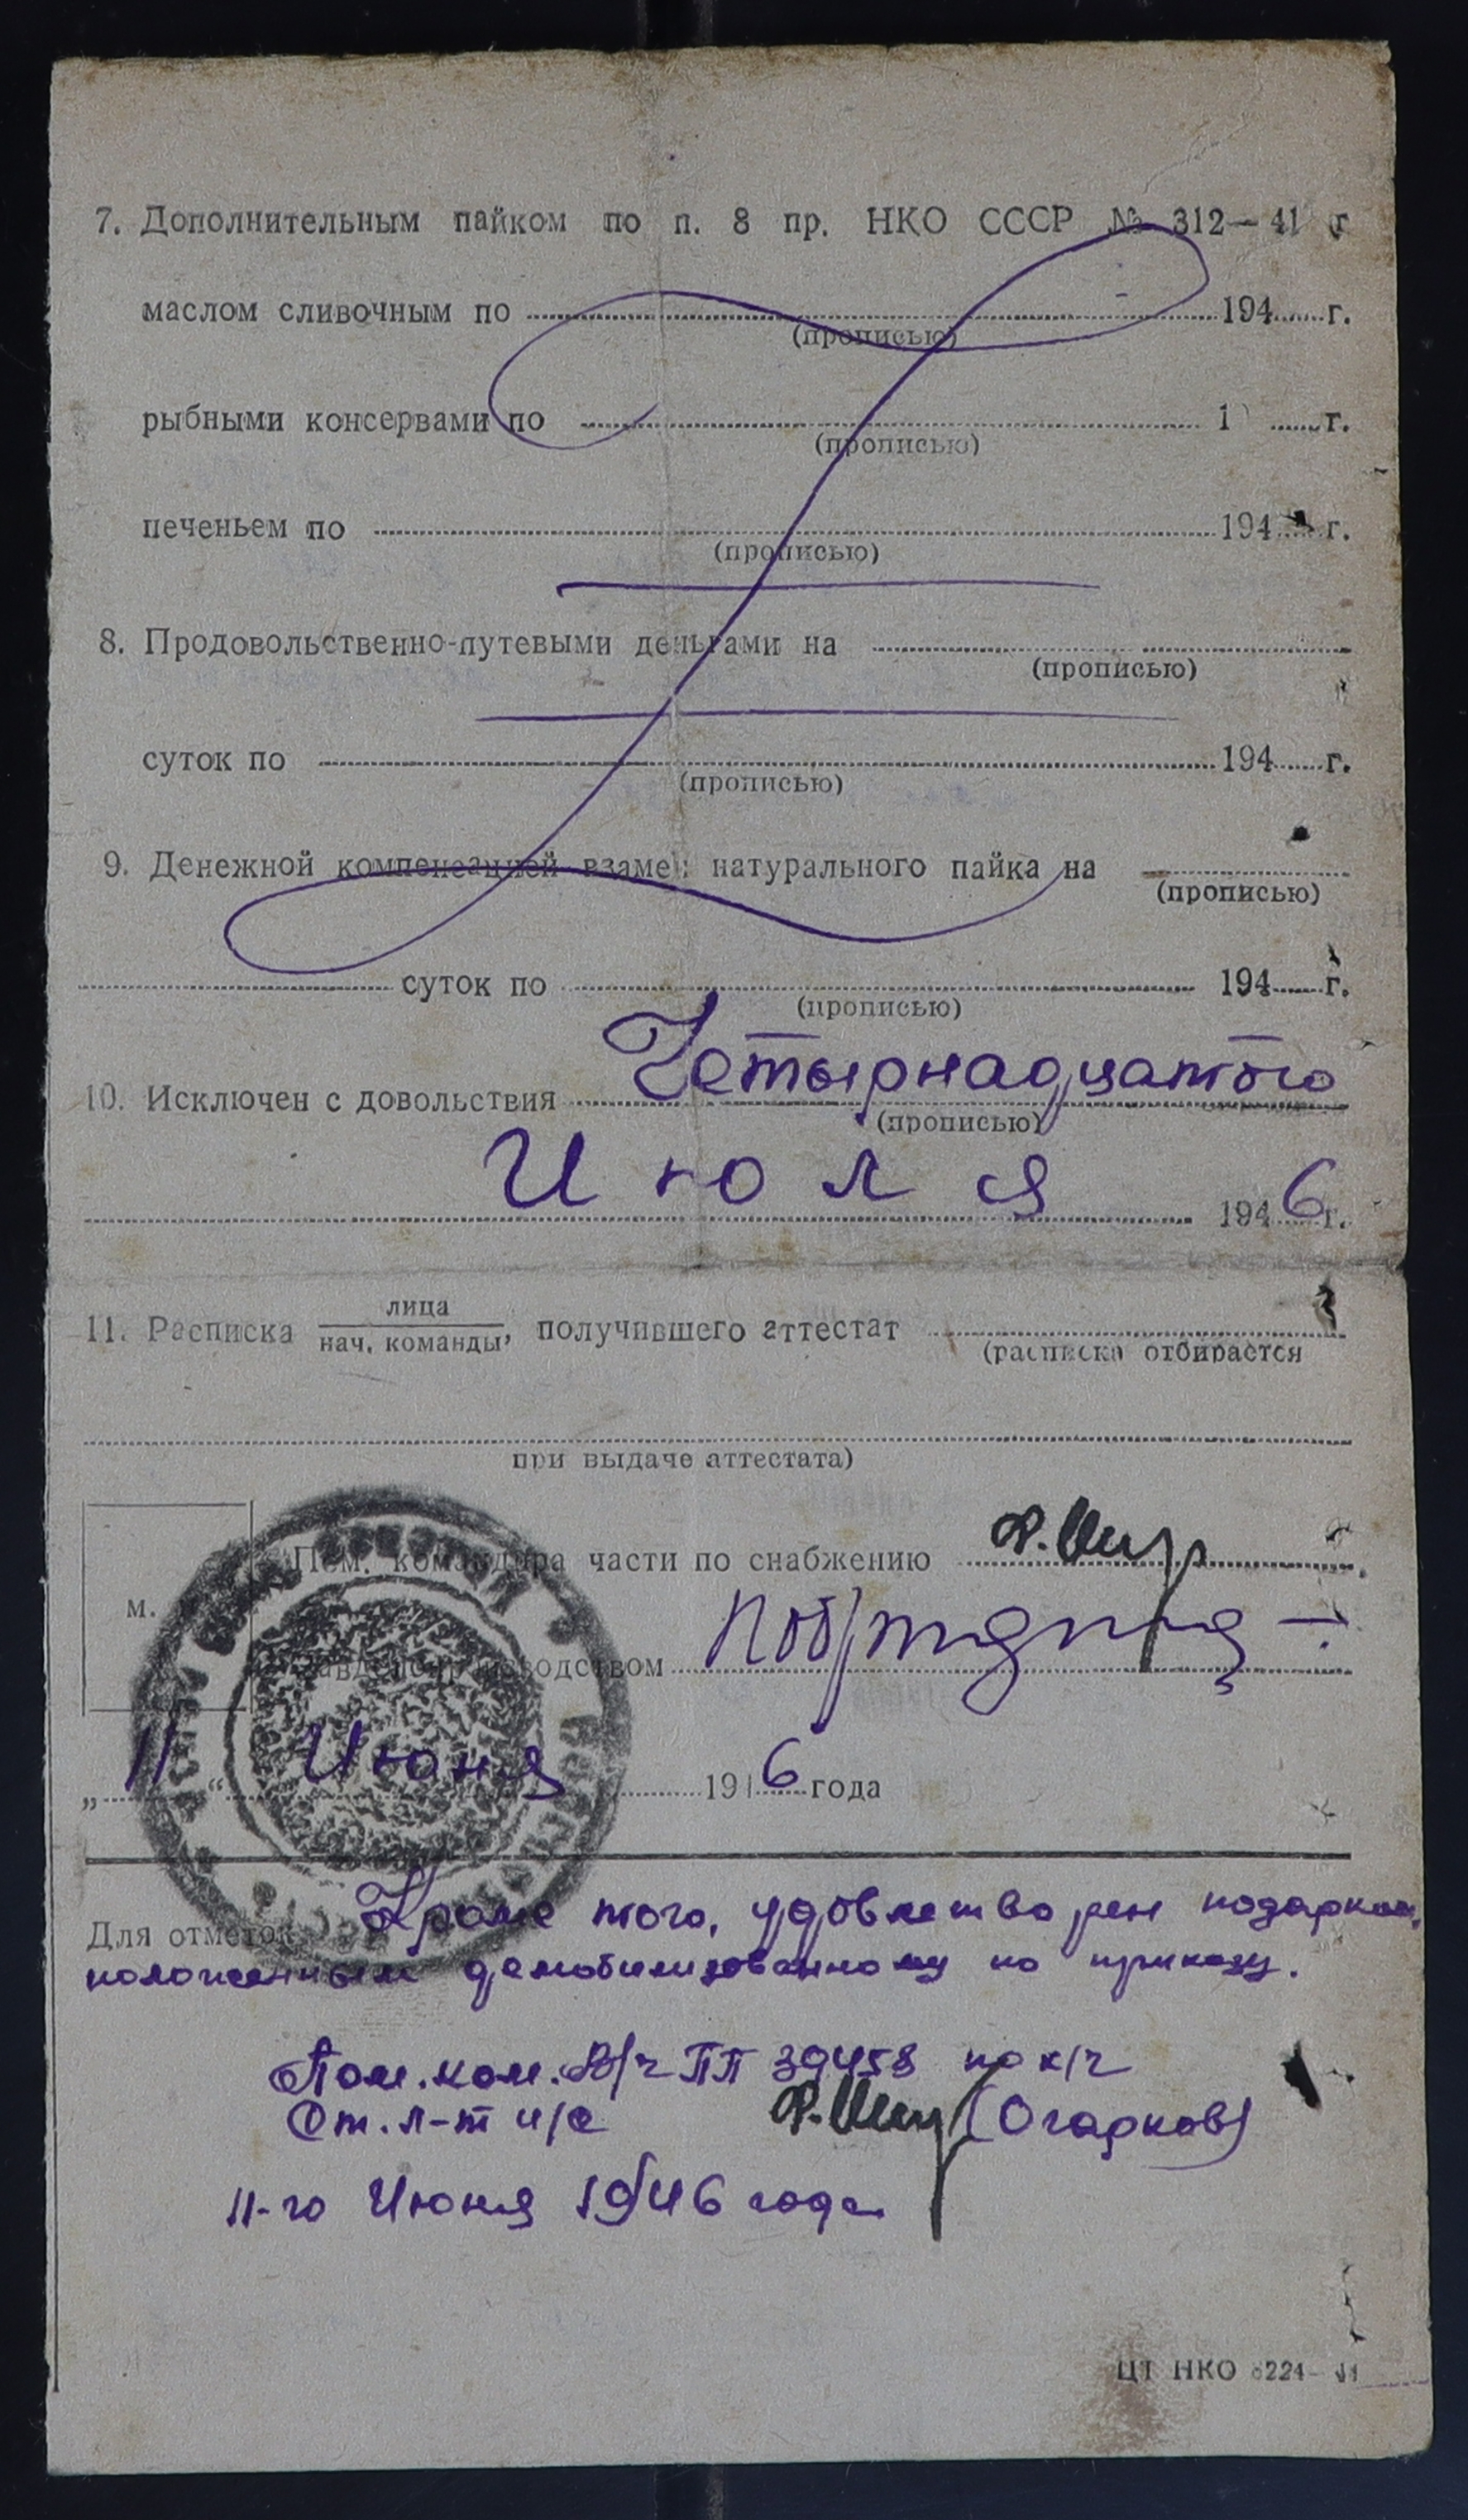 7. Дополнительным пайком по п. 8 пр. НКО СССР № 312—41 г
маслом сливочным по 194 г.
(прописью)
рыбными консервами по 1 г.
(прописью)
печеньем по 194 г.
(прописью)
8. Продовольственно-путевыми деньгами на
(прописью)
суток по 194 г.
(прописью)
9. Денежной компенсацией взамен натурального пайка на
(прописью)
суток по 194 г.
(прописью)
10. Исключен с довольствия Четырнадцатого
(прописью)
Июля 1946 г.
11. Расписка лица
нач. команды, получившего аттестат
(расписка отбирается
при выдаче аттестата)
Пом. командира части по снабжению
м.
водством
„11“ Июня 1946 года
Для отметок Кроме того, удовлетворен подарком,
положенным демобилизованному по приказу.
Пом. ком. В/ч ПП 39458 по х/ч
Ст. л-т и/с (Огарков)
11-го Июня 1946 года
ЦТ НКО 224